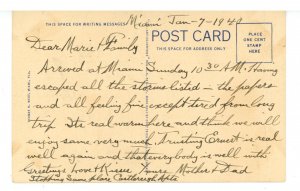 Miami Jan-7-1940
THIS SPACE FOR WRITING MESSAGES
POST CARD
THIS SPACE FOR ADDRESS ONLY
PLACE
ONE CENT
STAMP
HERE
Dear Marie & Family
Arrived at Miami Sunday 10:30 A.M. Having
escaped all the storms listed in the papers
and all feeling fine except tired from long
trip. Its real warm here and think we will
enjoy same very much. Trusting Ernest is real
well again and that everybody is well with
Greetings Love & Kisses Yours Mother & Dad
Stopping same place Apts